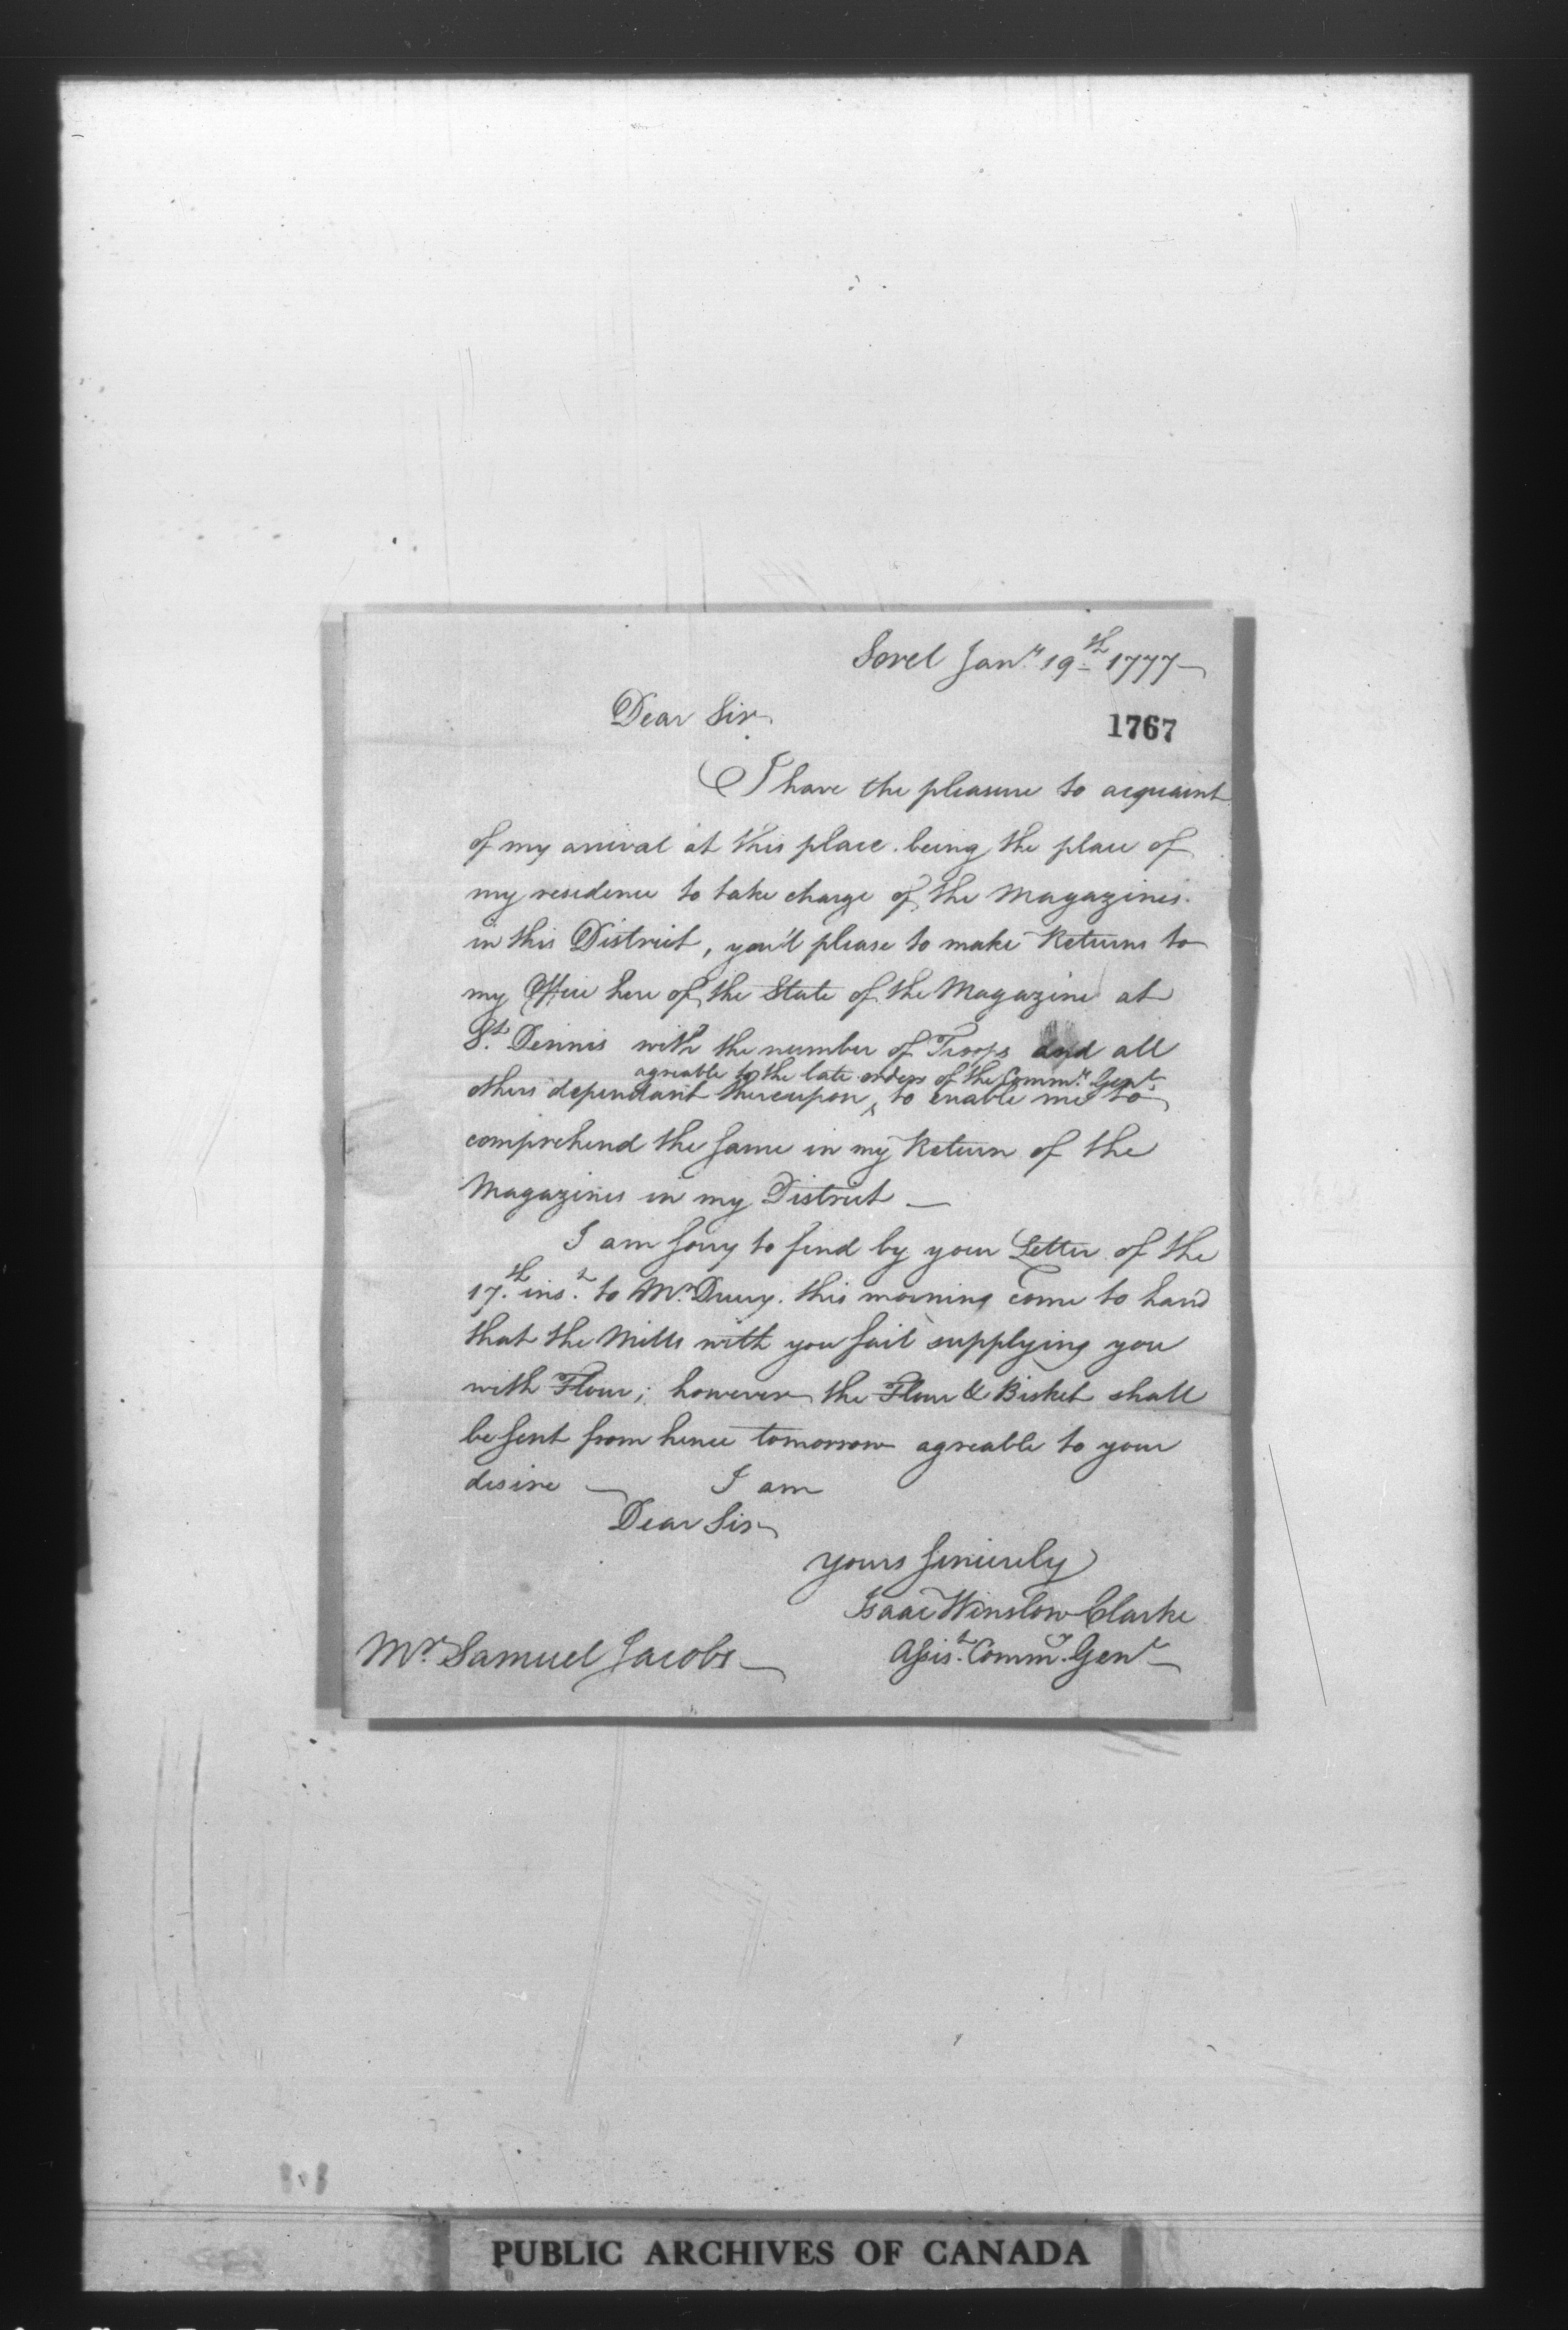 Sorel Jan.y 19th 1777
Dear Sir
1767
I have the pleasure to acquaint
of my arrival at this place being the place of
my residence to take charge of the Magazines
in this District, you'l please to make Returns to
my Office here of the State of the Magazine at
St. Dennis with the number of Troops and all
agreable to the late orders of the Comm.y Gen.l
others dependant thereupon ^ to enable me to
comprehend the same in my Return of the
Magazines in my District —
I am sorry to find by your Letter of the
17.th ins.t to Mr. Drury this morning come to hand
that the Mills with you fail supplying you
with Flour; however the Flour & Bisket shall
be sent from hence tomorrow agreable to your
desire — I am
Dear Sir
yours sincerely
Isaac Winslow Clarke
Assis.t Comm.y Gen.l
Mr. Samuel Jacobs
PUBLIC ARCHIVES OF CANADA